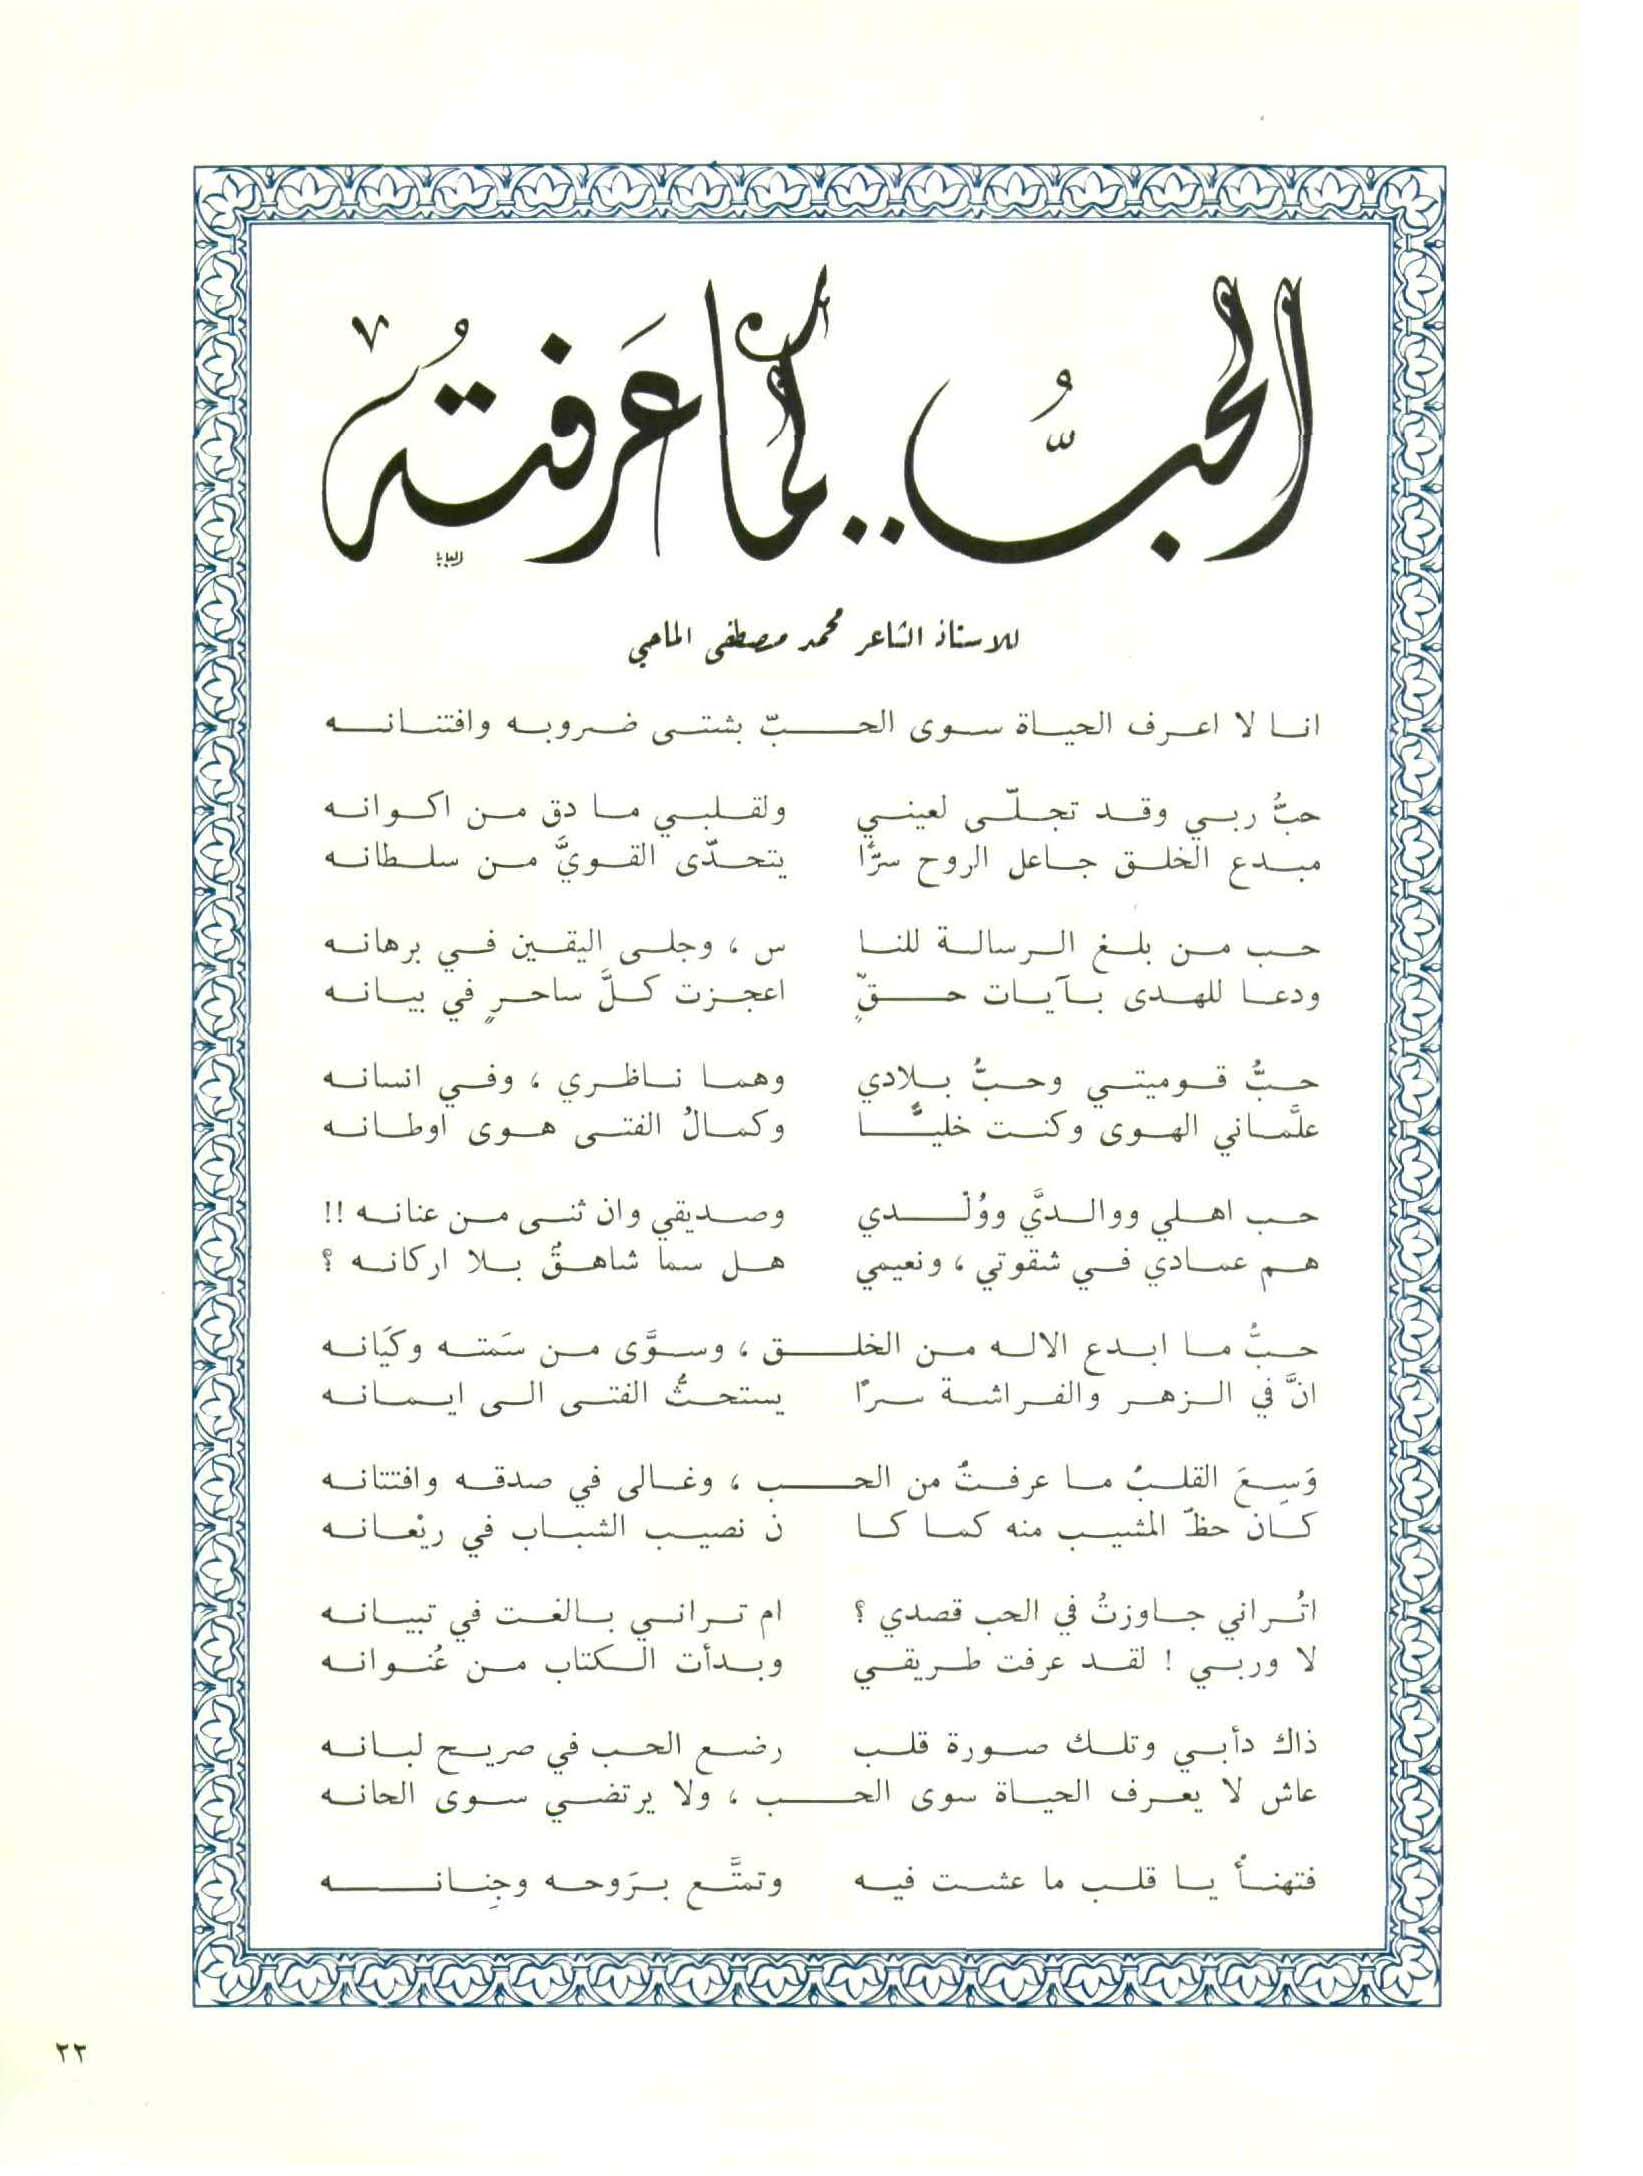 الحبُّ .. كما عرفتهُ
للاستاذ الشاعر محمد مصطفى الماحي
انا لا اعرف الحياة سوى الحبّ بشتى ضروبه وافتنانه
حبُّ ربي وقد تجلّى لعيني ولقلبي ما دق من اكوانه
مبدع الخلق جاعل الروح سرًّا يتحدّى القويَّ من سلطانه
حب من بلغ الرسالة للنا س ، وجلى اليقين في برهانه
ودعا للهدى بآيات حقٍّ اعجزت كلَّ ساحرٍ في بيانه
حبُّ قوميتي وحبُّ بلادي وهما ناظري ، وفي انسانه
علَّماني الهوى وكنت خليًّا وكمالُ الفتى هوى اوطانه
حب اهلي ووالديَّ ووُلْدي وصديقي وان ثنى من عنانه !!
هم عمادي في شقوتي ، ونعيمي هل سما شاهقٌ بلا اركانه ؟
حبُّ ما ابدع الاله من الخلق ، وسوَّى من سَمته وكَيَانه
انَّ في الزهر والفراشة سرًا يستحثُّ الفتى الى ايمانه
وَسِعَ القلبُ ما عرفتُ من الحب ، وغالى في صدقه وافتتانه
كان حظّ المشيب منه كما كا ن نصيب الشباب في ريْعانه
اتُراني جاوزتُ في الحب قصدي ؟ ام تراني بالغت في تبيانه
لا وربي ! لقد عرفت طريقي وبدأت الكتاب من عُنوانه
ذاك دأبي وتلك صورة قلب رضع الحب في صريح لبانه
عاش لا يعرف الحياة سوى الحب ، ولا يرتضي سوى الحانه
فتهنأْ يا قلب ما عشت فيه وتمتَّع برَوحه وجِنانه
٢٣